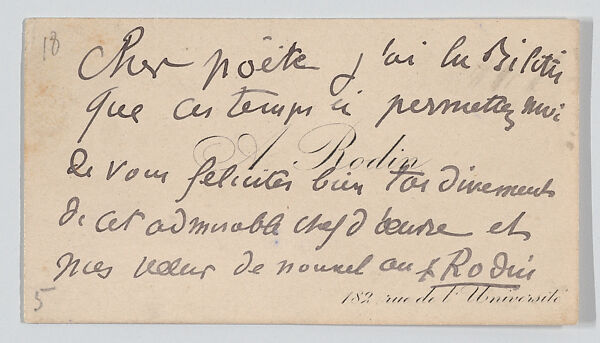 18
Cher poëte j'ai lu Bilitis
que ces temps ci permettez moi
A. Rodin
de vous feliciter bien tardivement
de cet admirable chef d'œuvre et
mes vœux de nouvel an A Rodin
182, rue de l'Université
5